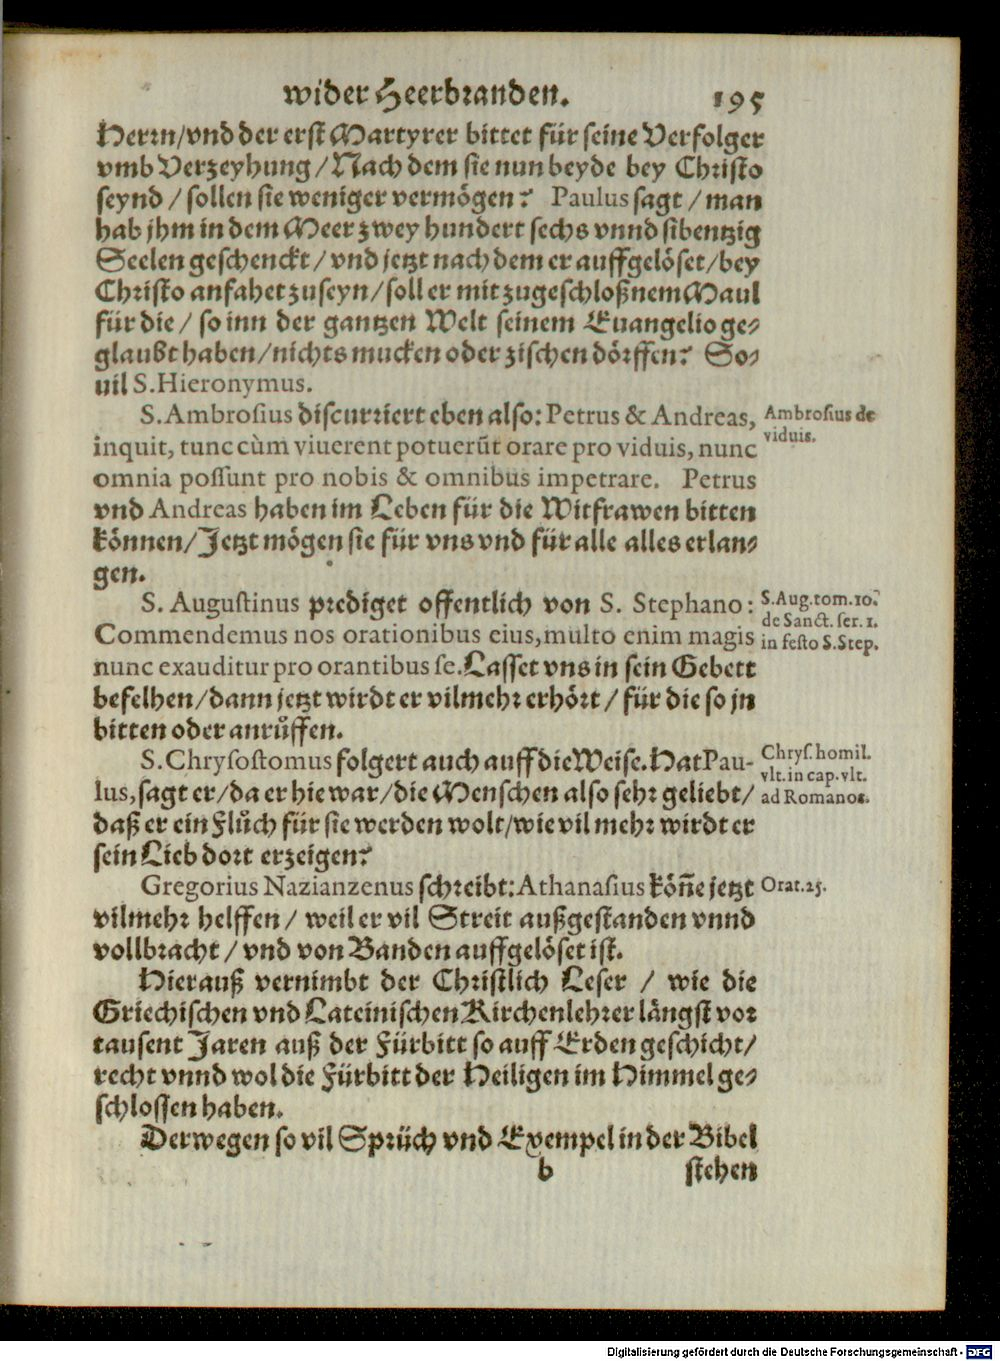 wider Heerbranden. 195
Herrn/vnd der erst Martyrer bittet für seine Verfolger
vmb Verzeyhung/Nach dem sie nun beyde bey Christo
seynd/sollen sie weniger vermögen? Paulus sagt/man
hab jhm in dem Meer zwey hundert sechs vnnd sibentzig
Seelen geschenckt/vnd jetzt nach dem er auffgelöset/bey
Christo anfahet zuseyn/soll er mit zugeschloßnem Maul
für die/so inn der gantzen Welt seinem Euangelio ge-
glaubt haben/nichts mucken oder zischen dörffen? So-
uil S. Hieronymus.
S. Ambrosius discurriert eben also: Petrus & Andreas,
inquit, tunc cùm viuerent potuerũt orare pro viduis, nunc
omnia possunt pro nobis & omnibus impetrare. Petrus
vnd Andreas haben im Leben für die Witfrawen bitten
können/Jetzt mögen sie für vns vnd für alle alles erlan-
gen.
Ambrosius de
viduis.
S. Augustinus prediget offentlich von S. Stephano:
Commendemus nos orationibus eius, multo enim magis
nunc exauditur pro orantibus se. Lasset vns in sein Gebett
befelhen/dann jetzt wirdt er vilmehr erhört/für die so jn
bitten oder anrůffen.
S. Aug. tom. 10.
de Sanct. ser. 1.
in festo S. Step.
S. Chrysostomus folgert auch auff die Weise. Hat Pau-
lus, sagt er/da er hie war/die Menschen also sehr geliebt/
daß er ein Flůch für sie werden wolt/wie vil mehr wirdt er
sein Lieb dort erzeigen?
Chrys. homil.
vlt. in cap. vlt.
ad Romanos.
Gregorius Nazianzenus schreibt: Athanasius köñe jetzt
vilmehr helffen/weil er vil Streit außgestanden vnnd
vollbracht/vnd von Banden auffgelöset ist.
Orat. 25.
Hierauß vernimbt der Christlich Leser/wie die
Griechischen vnd Lateinischen Kirchenlehrer längst vor
tausent Jaren auß der Fürbitt so auff Erden geschicht/
recht vnnd wol die Fürbitt der Heiligen im Himmel ge-
schlossen haben.
Derwegen so vil Sprüch vnd Exempel in der Bibel
b stehen
Digitalisierung gefördert durch die Deutsche Forschungsgemeinschaft - DFG